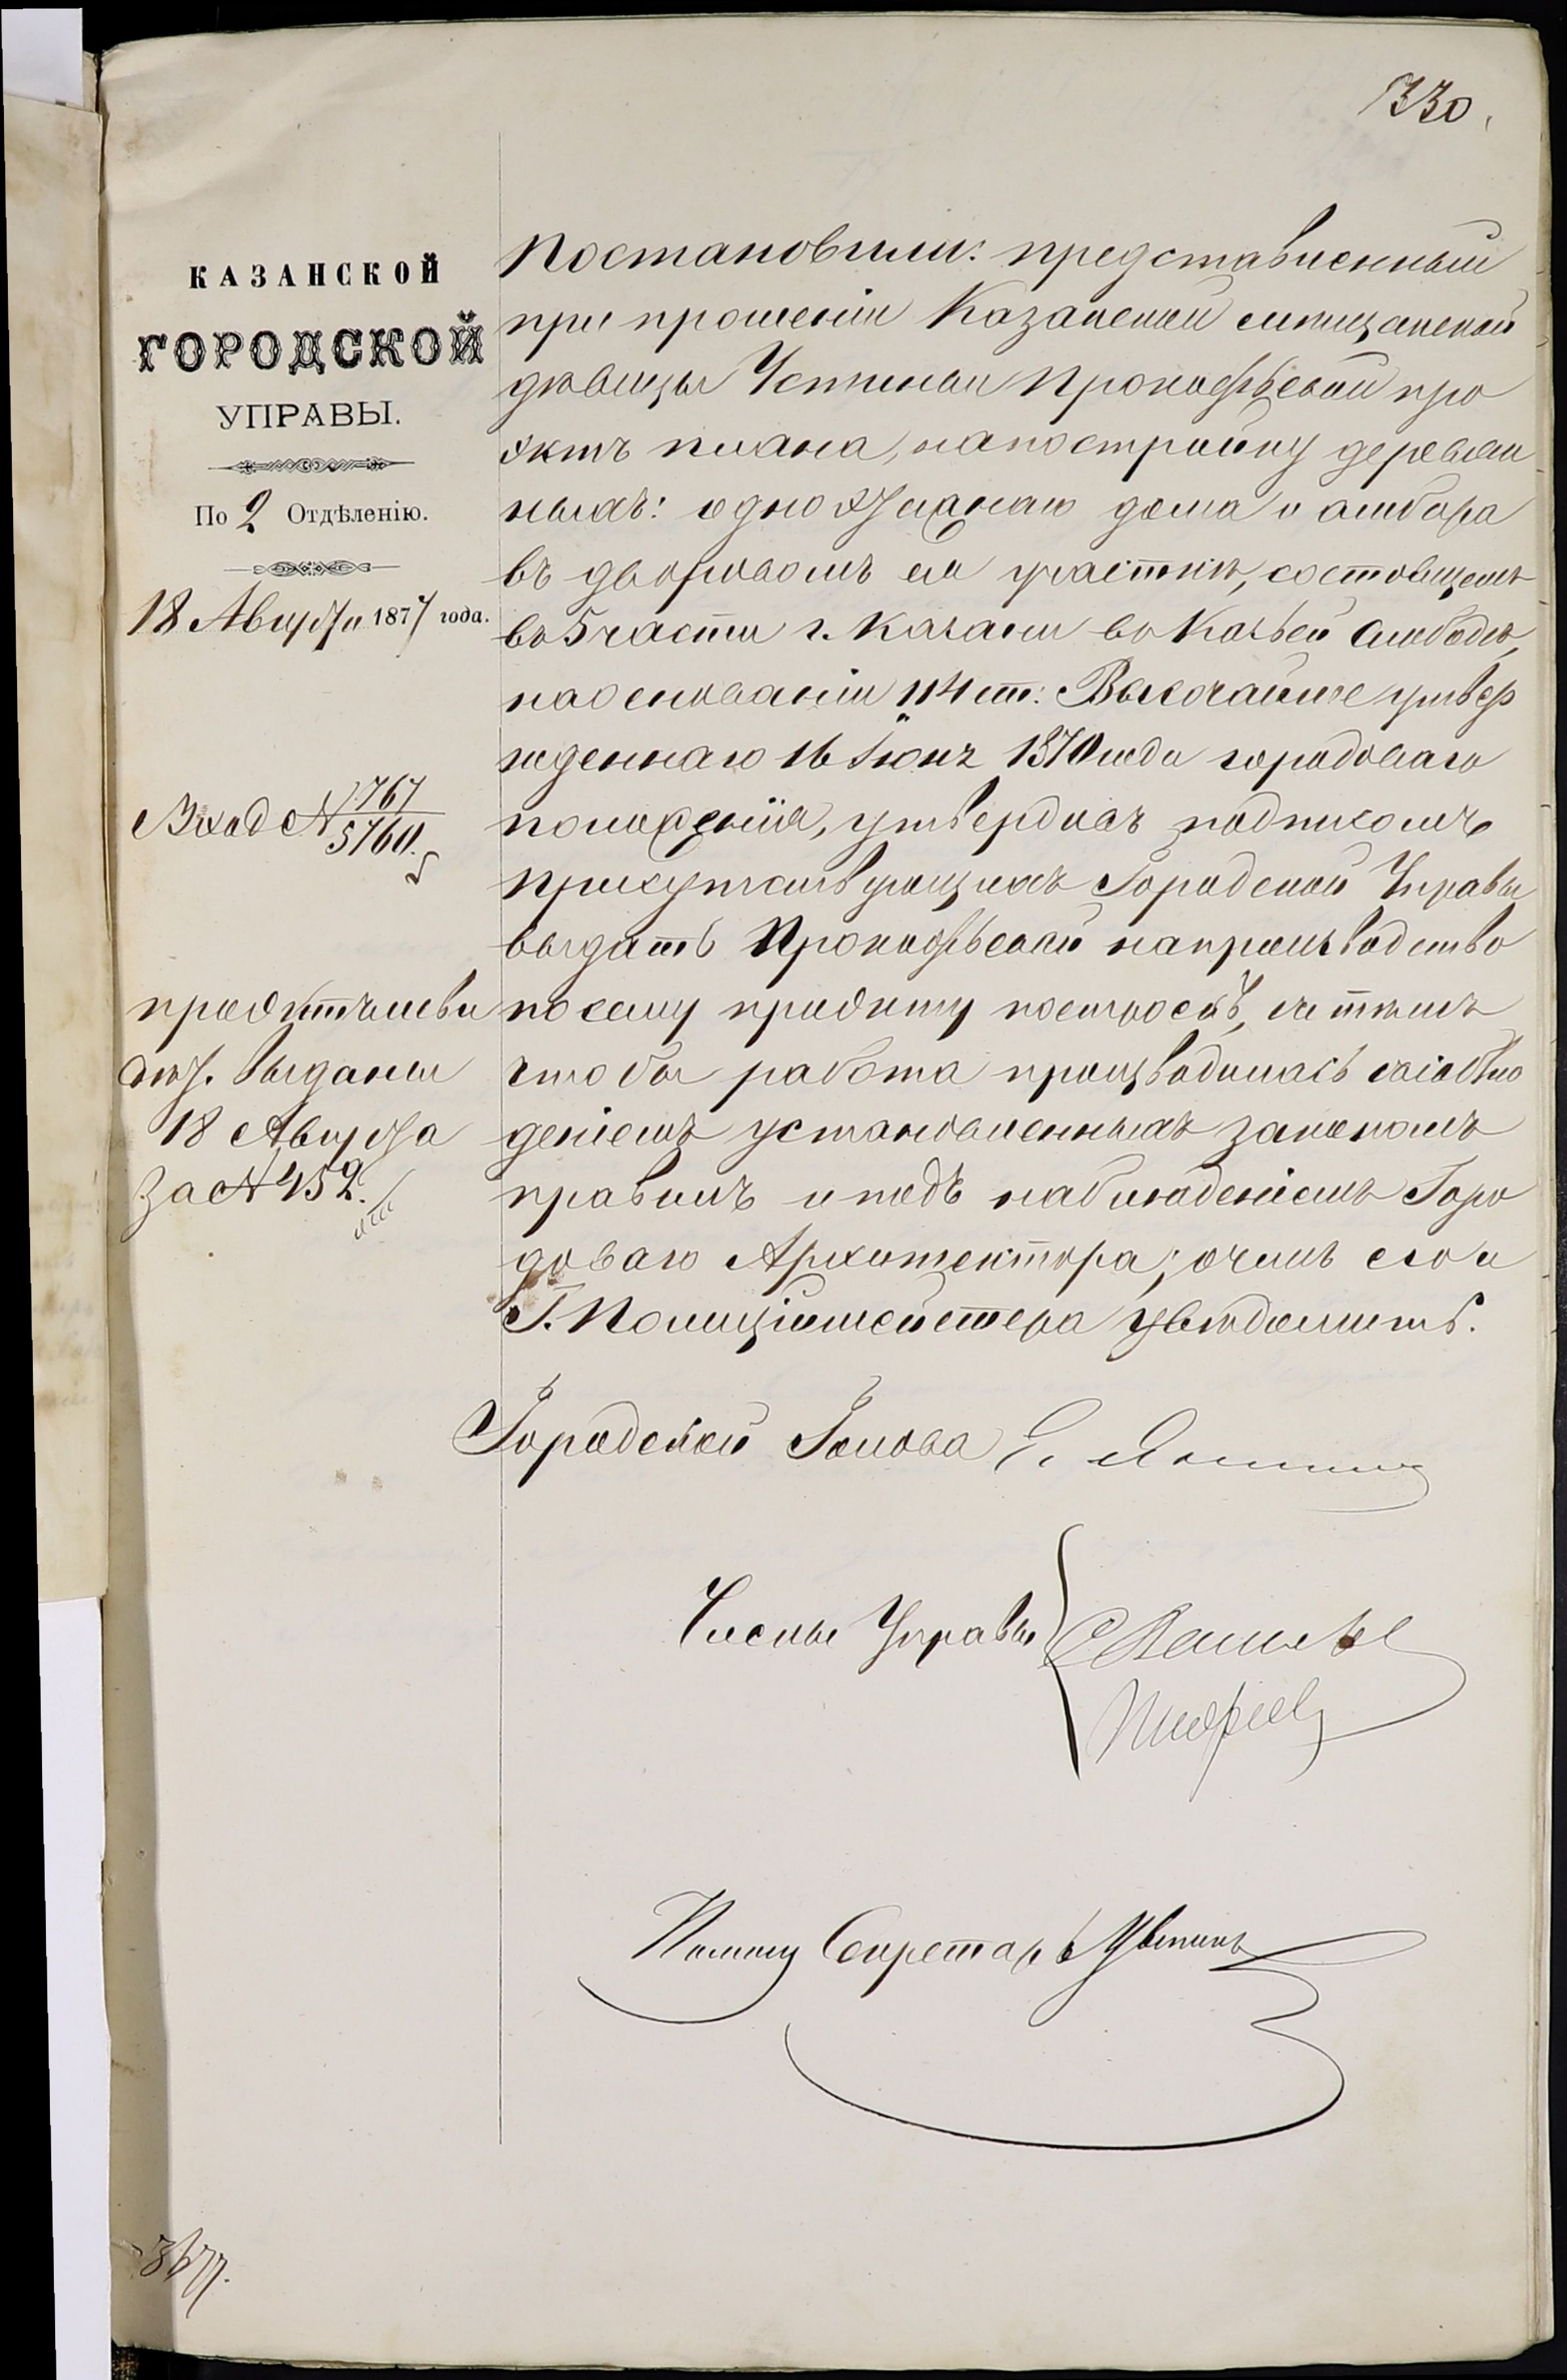 330.
КАЗАНСКОЙ
ГОРОДСКОЙ
УПРАВЫ.
По 2 Отдѣленію.
18 Августа 1877 года.
Вход № 1767
5760.
проэктъ
выданы
18 Августа
за № 452.
Постановили: представленный
при прошеніи Казанской мѣщанской
дѣвицы Устиньи Прокофьевой про
эктъ плана, на постройку деревян
ныхъ: одноэтажнаго дома и амбара
въ дворовомъ ея участкѣ, состоящемъ
въ 5 части г. Казани въ Козьей слободѣ,
на основаніи 114 ст: Высочайше утвер
жденнаго 16 Іюня 1870 года городоваго
положенія, утвердивъ подписомъ
присутствующихъ Городской Управы
выдать Прокофьевой на производство
по сему проэкту построекъ, съ тѣмъ
чтобы работа производилась съ соблю
деніемъ установленныхъ закономъ
правилъ и подъ наблюденіемъ Горо
доваго Архитектора; о чемъ его и
Г. Полиціймейстера увѣдомить.
Городской Голова Е. Янишъ
Члены Управы
Помощ Секретарь Цвѣтковъ